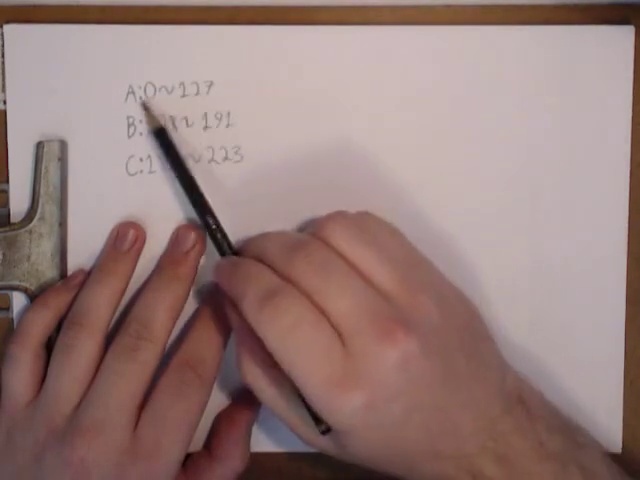 A:0~127
B: ~ 191
C:1 ~ 223